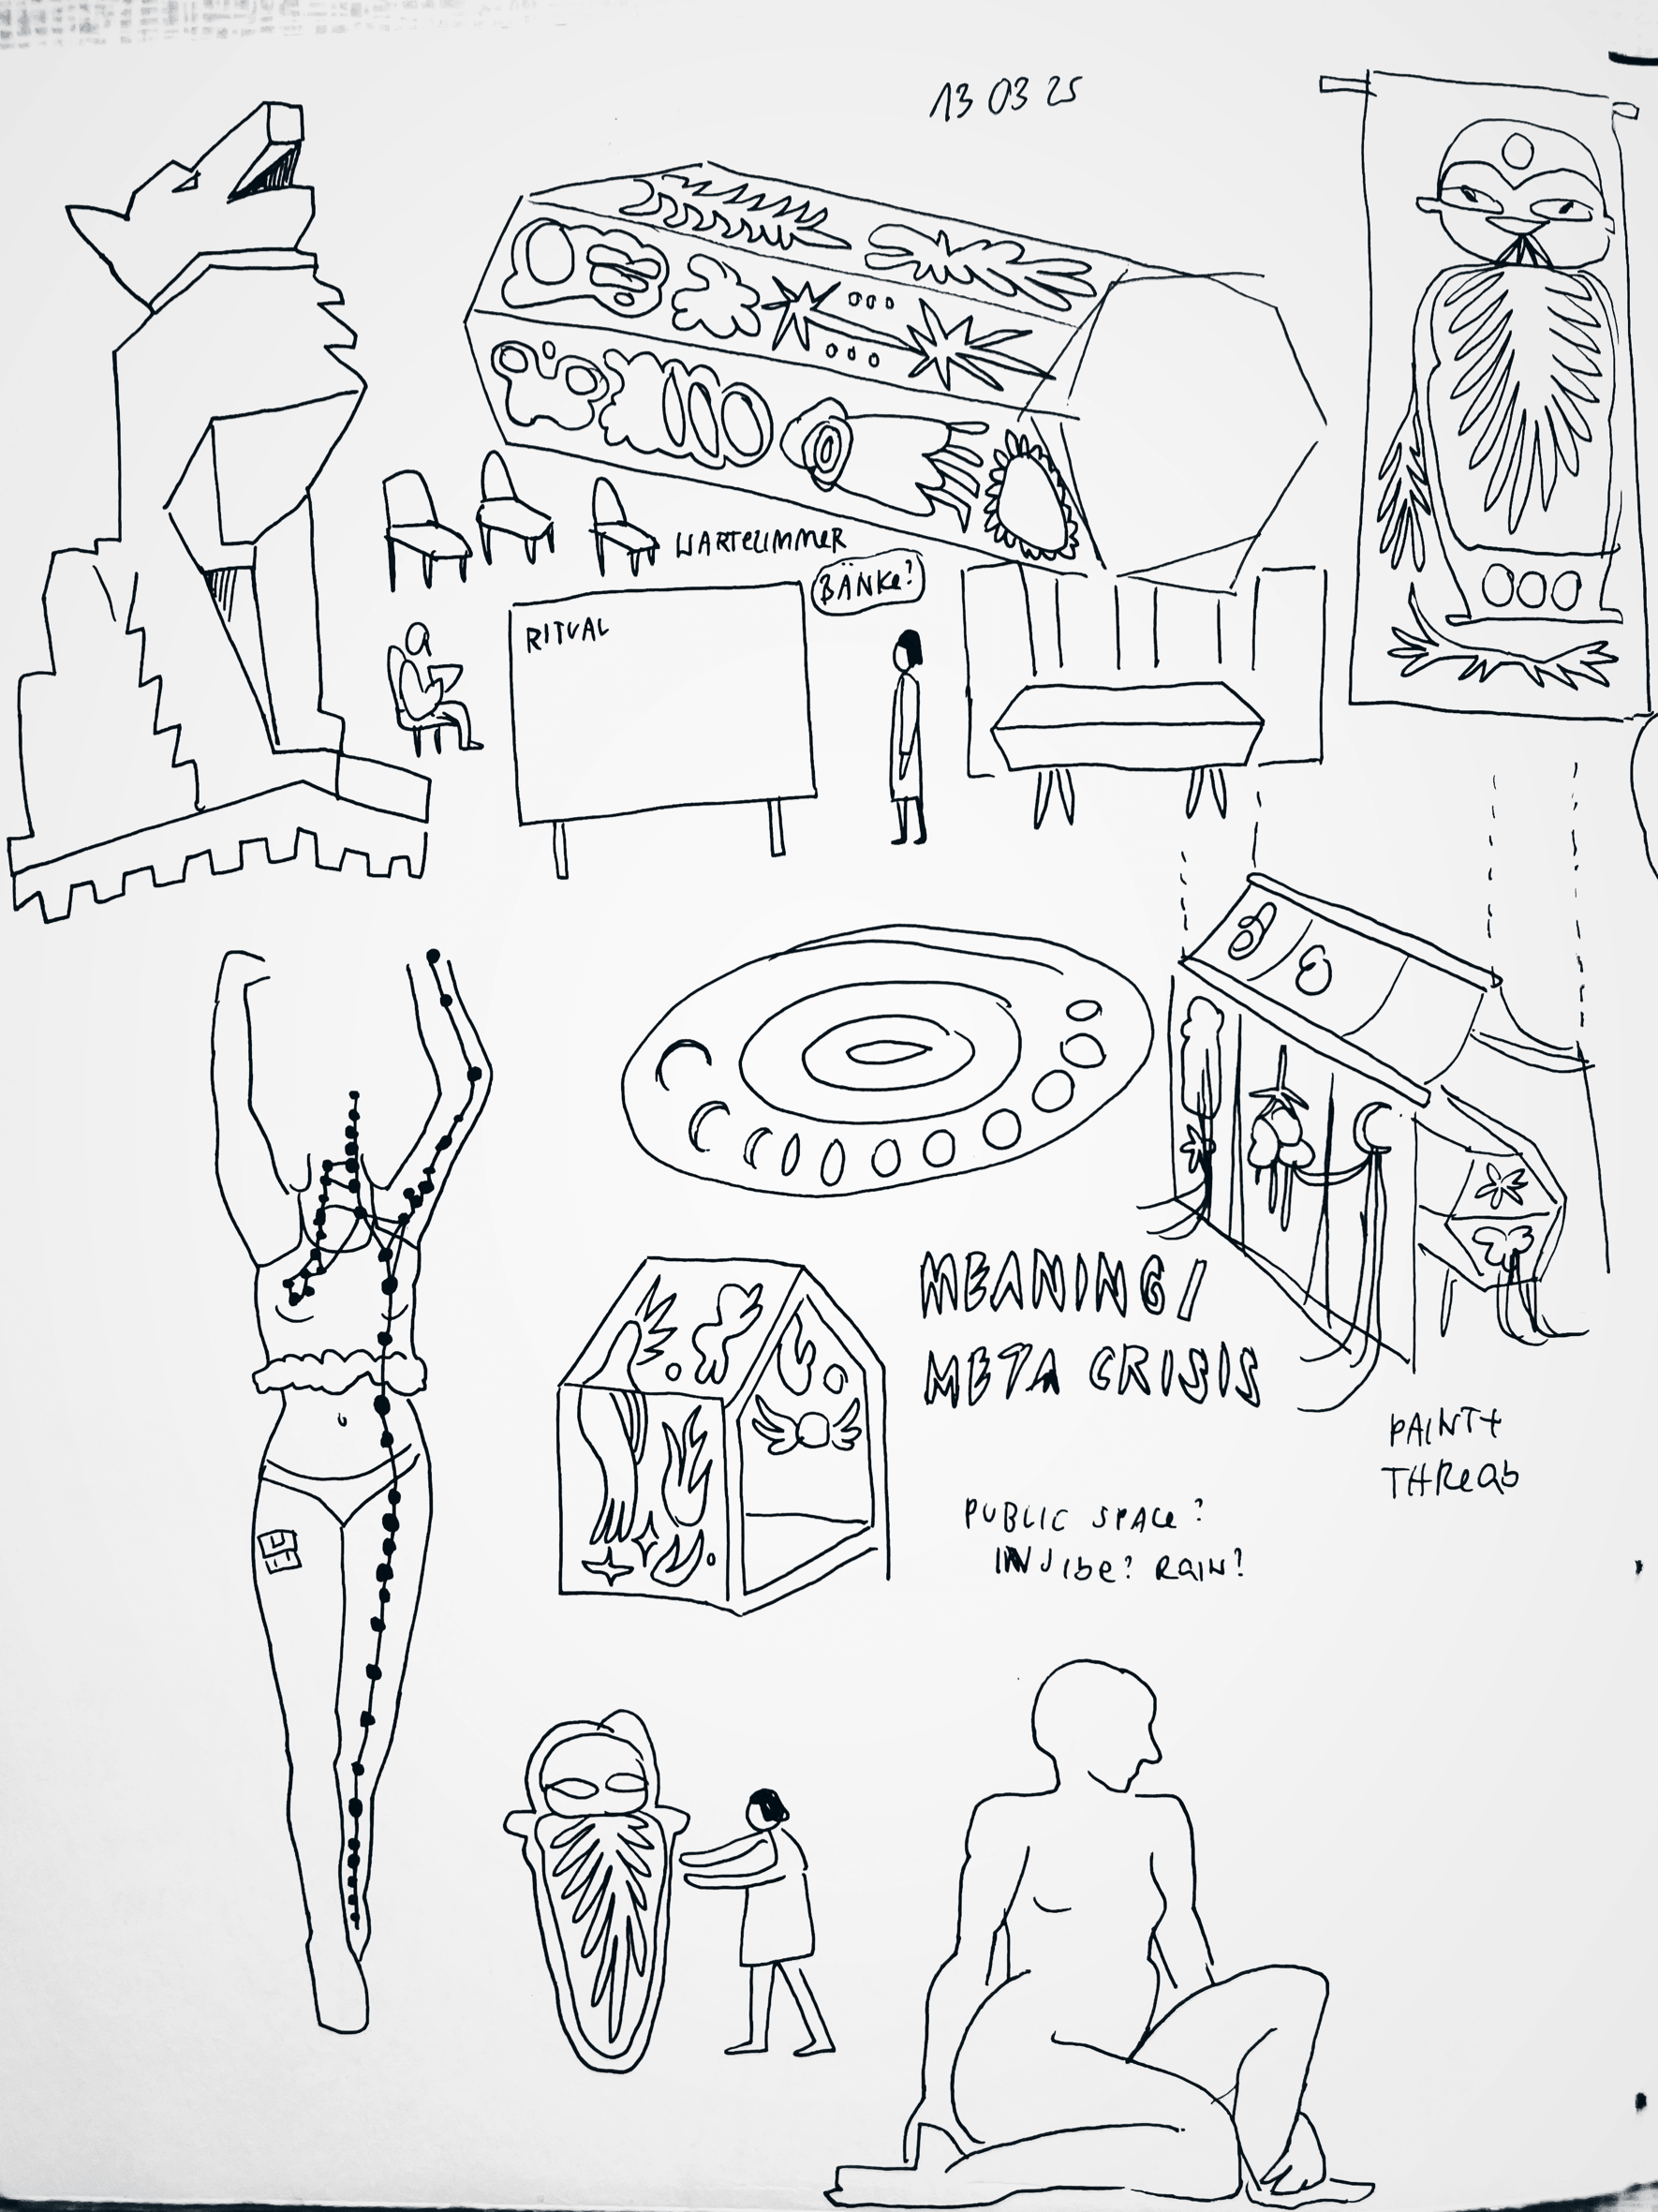 13 03 25
WARTEZIMMER
BÄNKe?
RITUAL
MEANING/
META CRISIS
PAINT+
THReAD
PUBLIC SPACe?
INSIDe? RAIN?